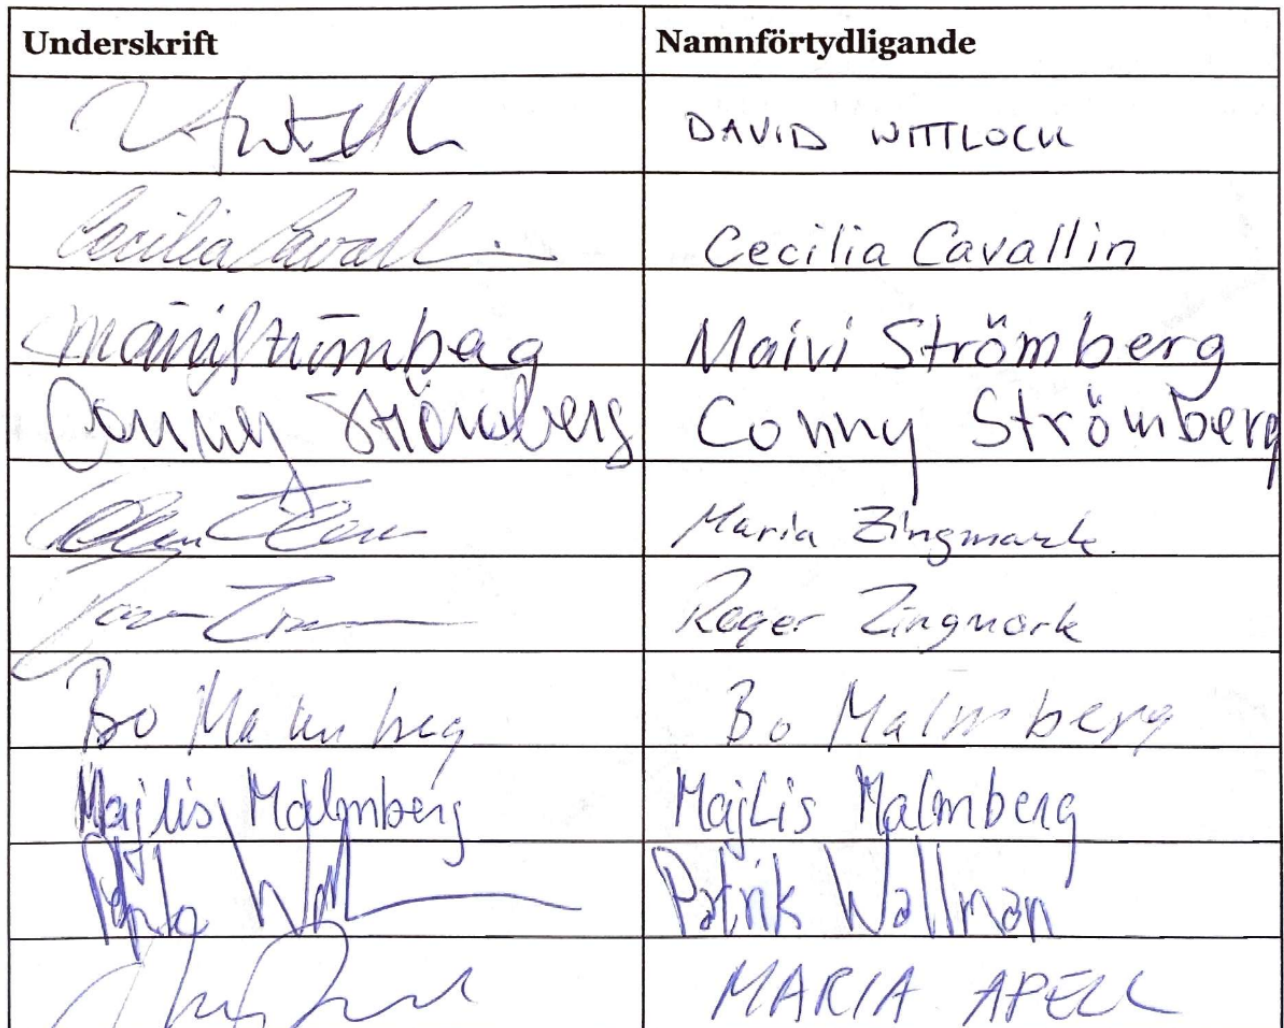 Underskrift Namnförtydligande
DAVID WITTLOCK
Cecilia Cavallin Cecilia Cavallin
Maivi Strömberg Maivi Strömberg
Conny Strömberg Conny Strömberg
Maria Zingmark.
Roger Zingmark
Bo Malmberg Bo Malmberg
Majlis Malmberg MajLis Malmberg
Patrik Wallman
MARIA APELL